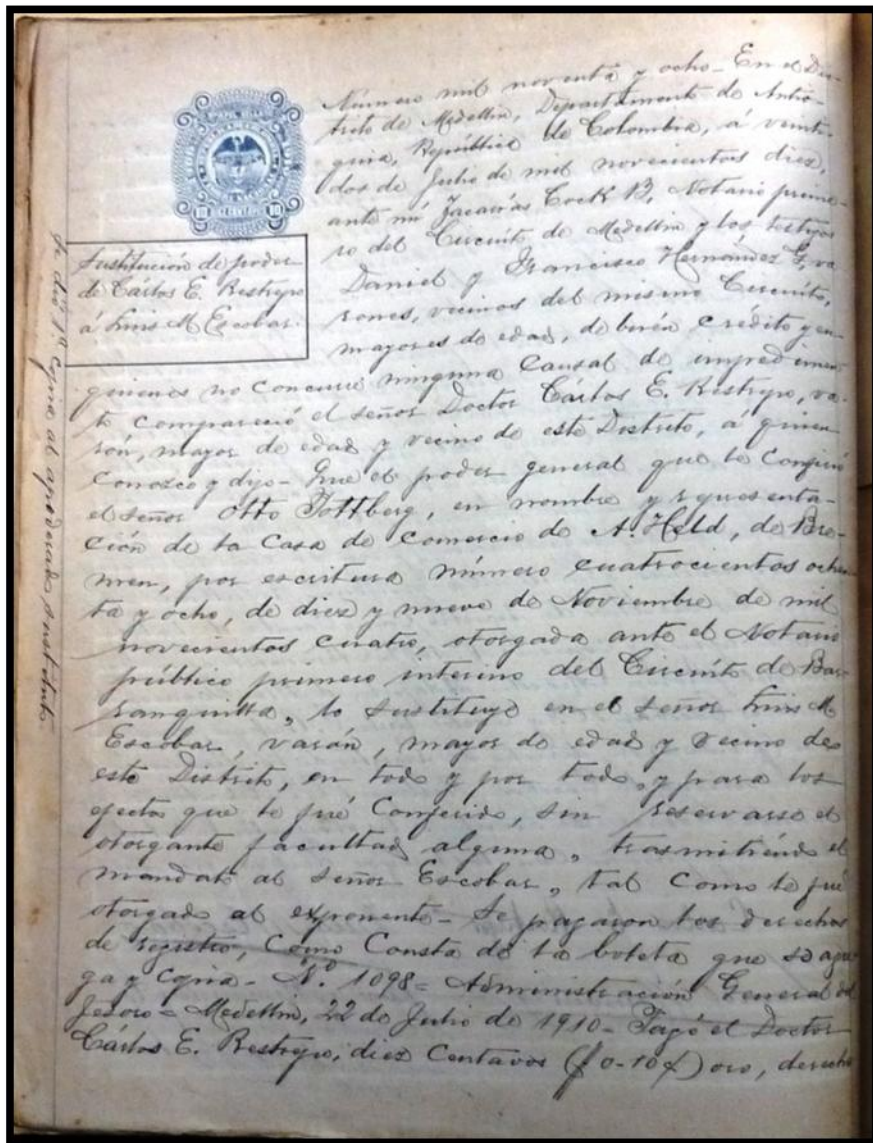 Número mil noventa y ocho - En el Dis-
trito de Medellín, Departamento de Antio-
quia, República de Colombia, á veinti-
dos de Julio de mil novecientos diez,
ante mí Zacarías Cock B, Notario prime-
ro del Circuito de Medellín y los testigos
Daniel y Francisco Hernández G, va
rones, vecinos del mismo Circuito,
mayores de edad, de buén crédito y en
quienes no concurre ninguna causal de impedimen-
to compareció el señor Doctor Cárlos E. Restrepo, va-
rón, mayor de edad y vecino de este Distrito, á quien
conozco y dijo - Que el poder general que le confirió
el señor Otto Tottberg, en nombre y representa-
ción de la Casa de Comercio de A. Held, de Bre-
men, por escritura número cuatrocientos ochen
ta y ocho, de diez y nueve de Noviembre de mil
novecientos cuatro, otorgada ante el Notario
público primero interino del Circuito de Bar
ranquilla, lo sustituye en el señor Luis M
Escobar, varón, mayor de edad y vecino de
este Distrito, en todo y por todo, y para los
efectos que le fué conferido, sin reservarse el
otorgante facultad alguna, trasmitiéndo el
mandato al señor Escobar, tal como le fué
otorgado al exponente - Se pagaron los derechos
de registro, como consta de la boleta que se agre
ga y copia - Nº. 1098 = Administración General del
Tesoro = Medellín, 22 de Julio de 1910 - Pagó el Doctor
Cárlos E. Restrepo, diez centavos ($ 0-10¢) oro, derecho
Sustitución de poder
de Cárlos E. Restrepo
á Luis M. Escobar.
Se dió 1ª. copia al apoderado sustituto.